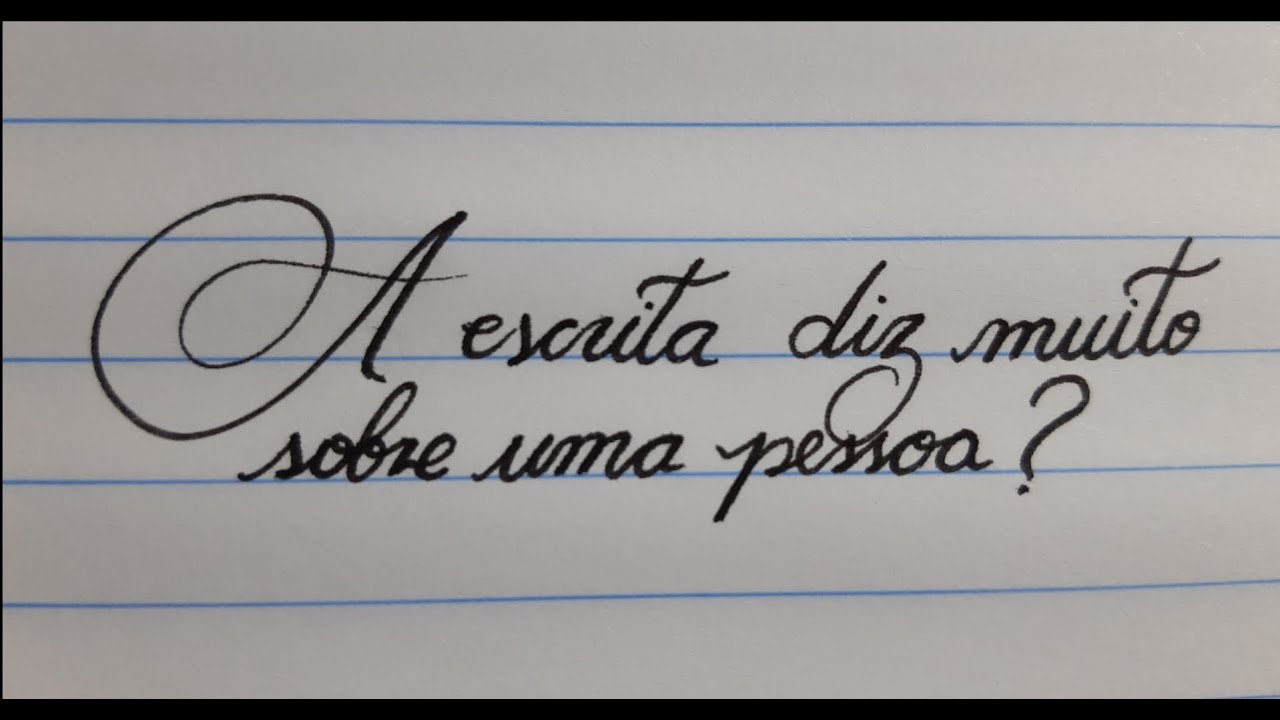 A escrita diz muito
sobre uma pessoa?